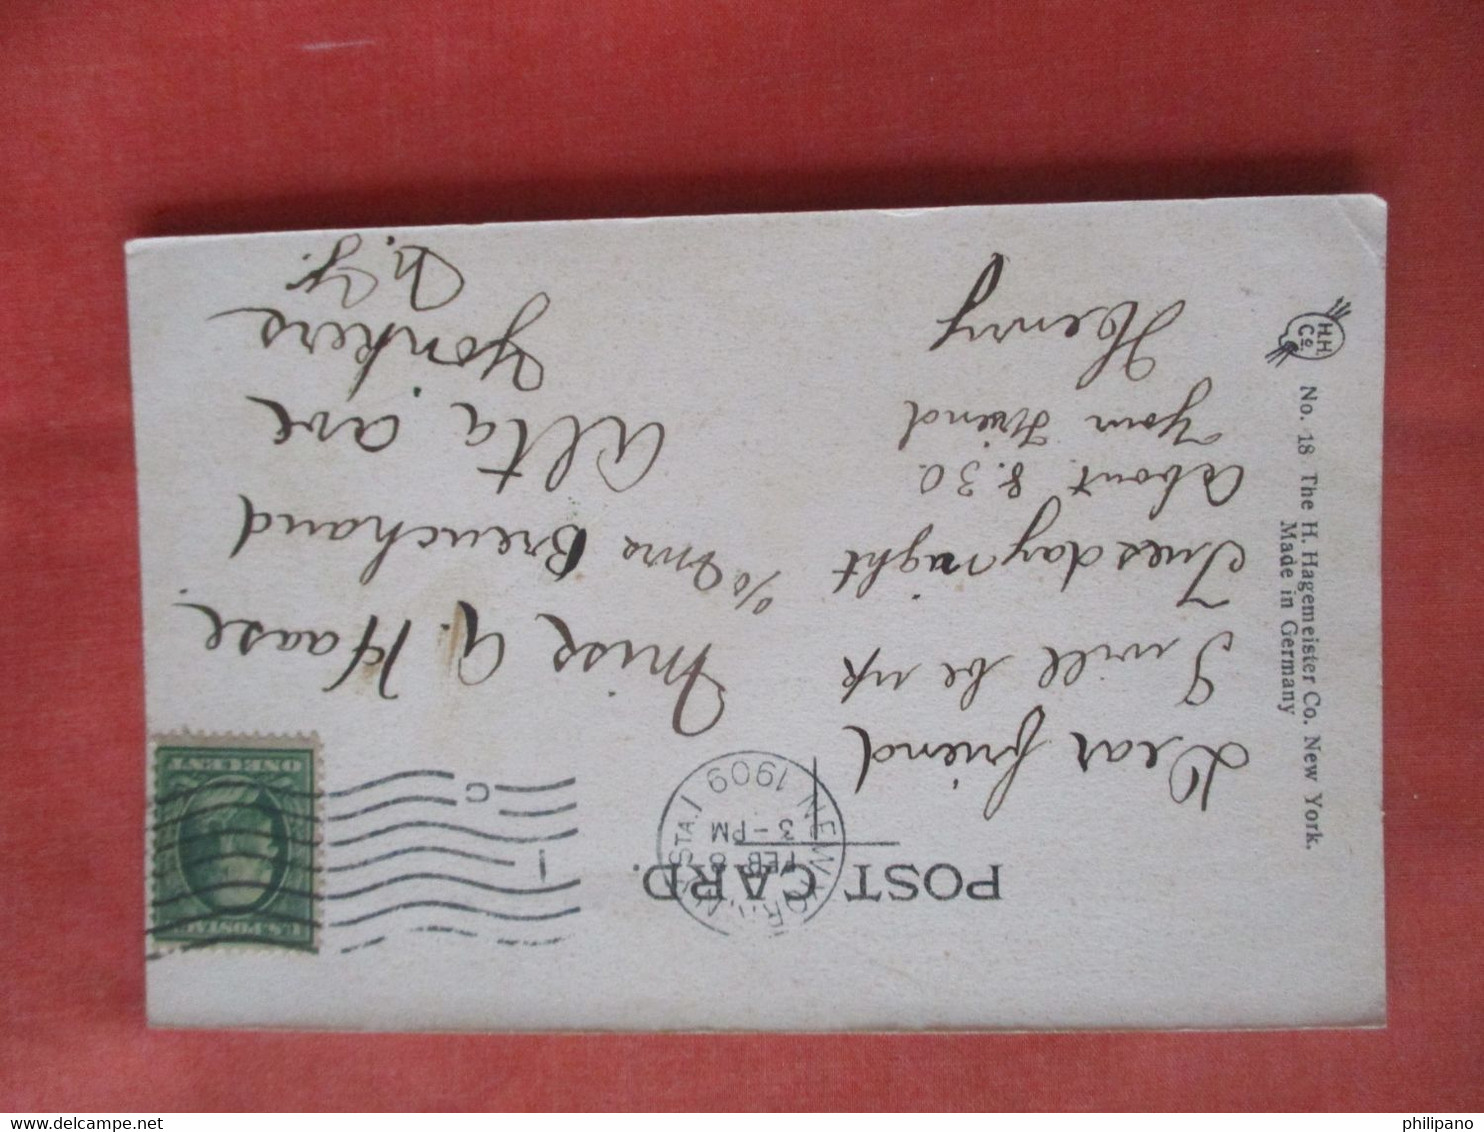 POST CARD.
NEW YORK, N.Y. STA. I
FEB 8
3-PM
1909
1
C
U.S. POSTAGE
ONE CENT
Dear friend
I will be up
Tuesday night
About 8.30
Your Friend
Henry
Miss A. Haase.
℅ Mrs Breuchaud
Alta ave
Yonkers
N.Y.
H.H.
Co.
No. 18 The H. Hagemeister Co. New York.
Made in Germany
philipano
delcampe.net